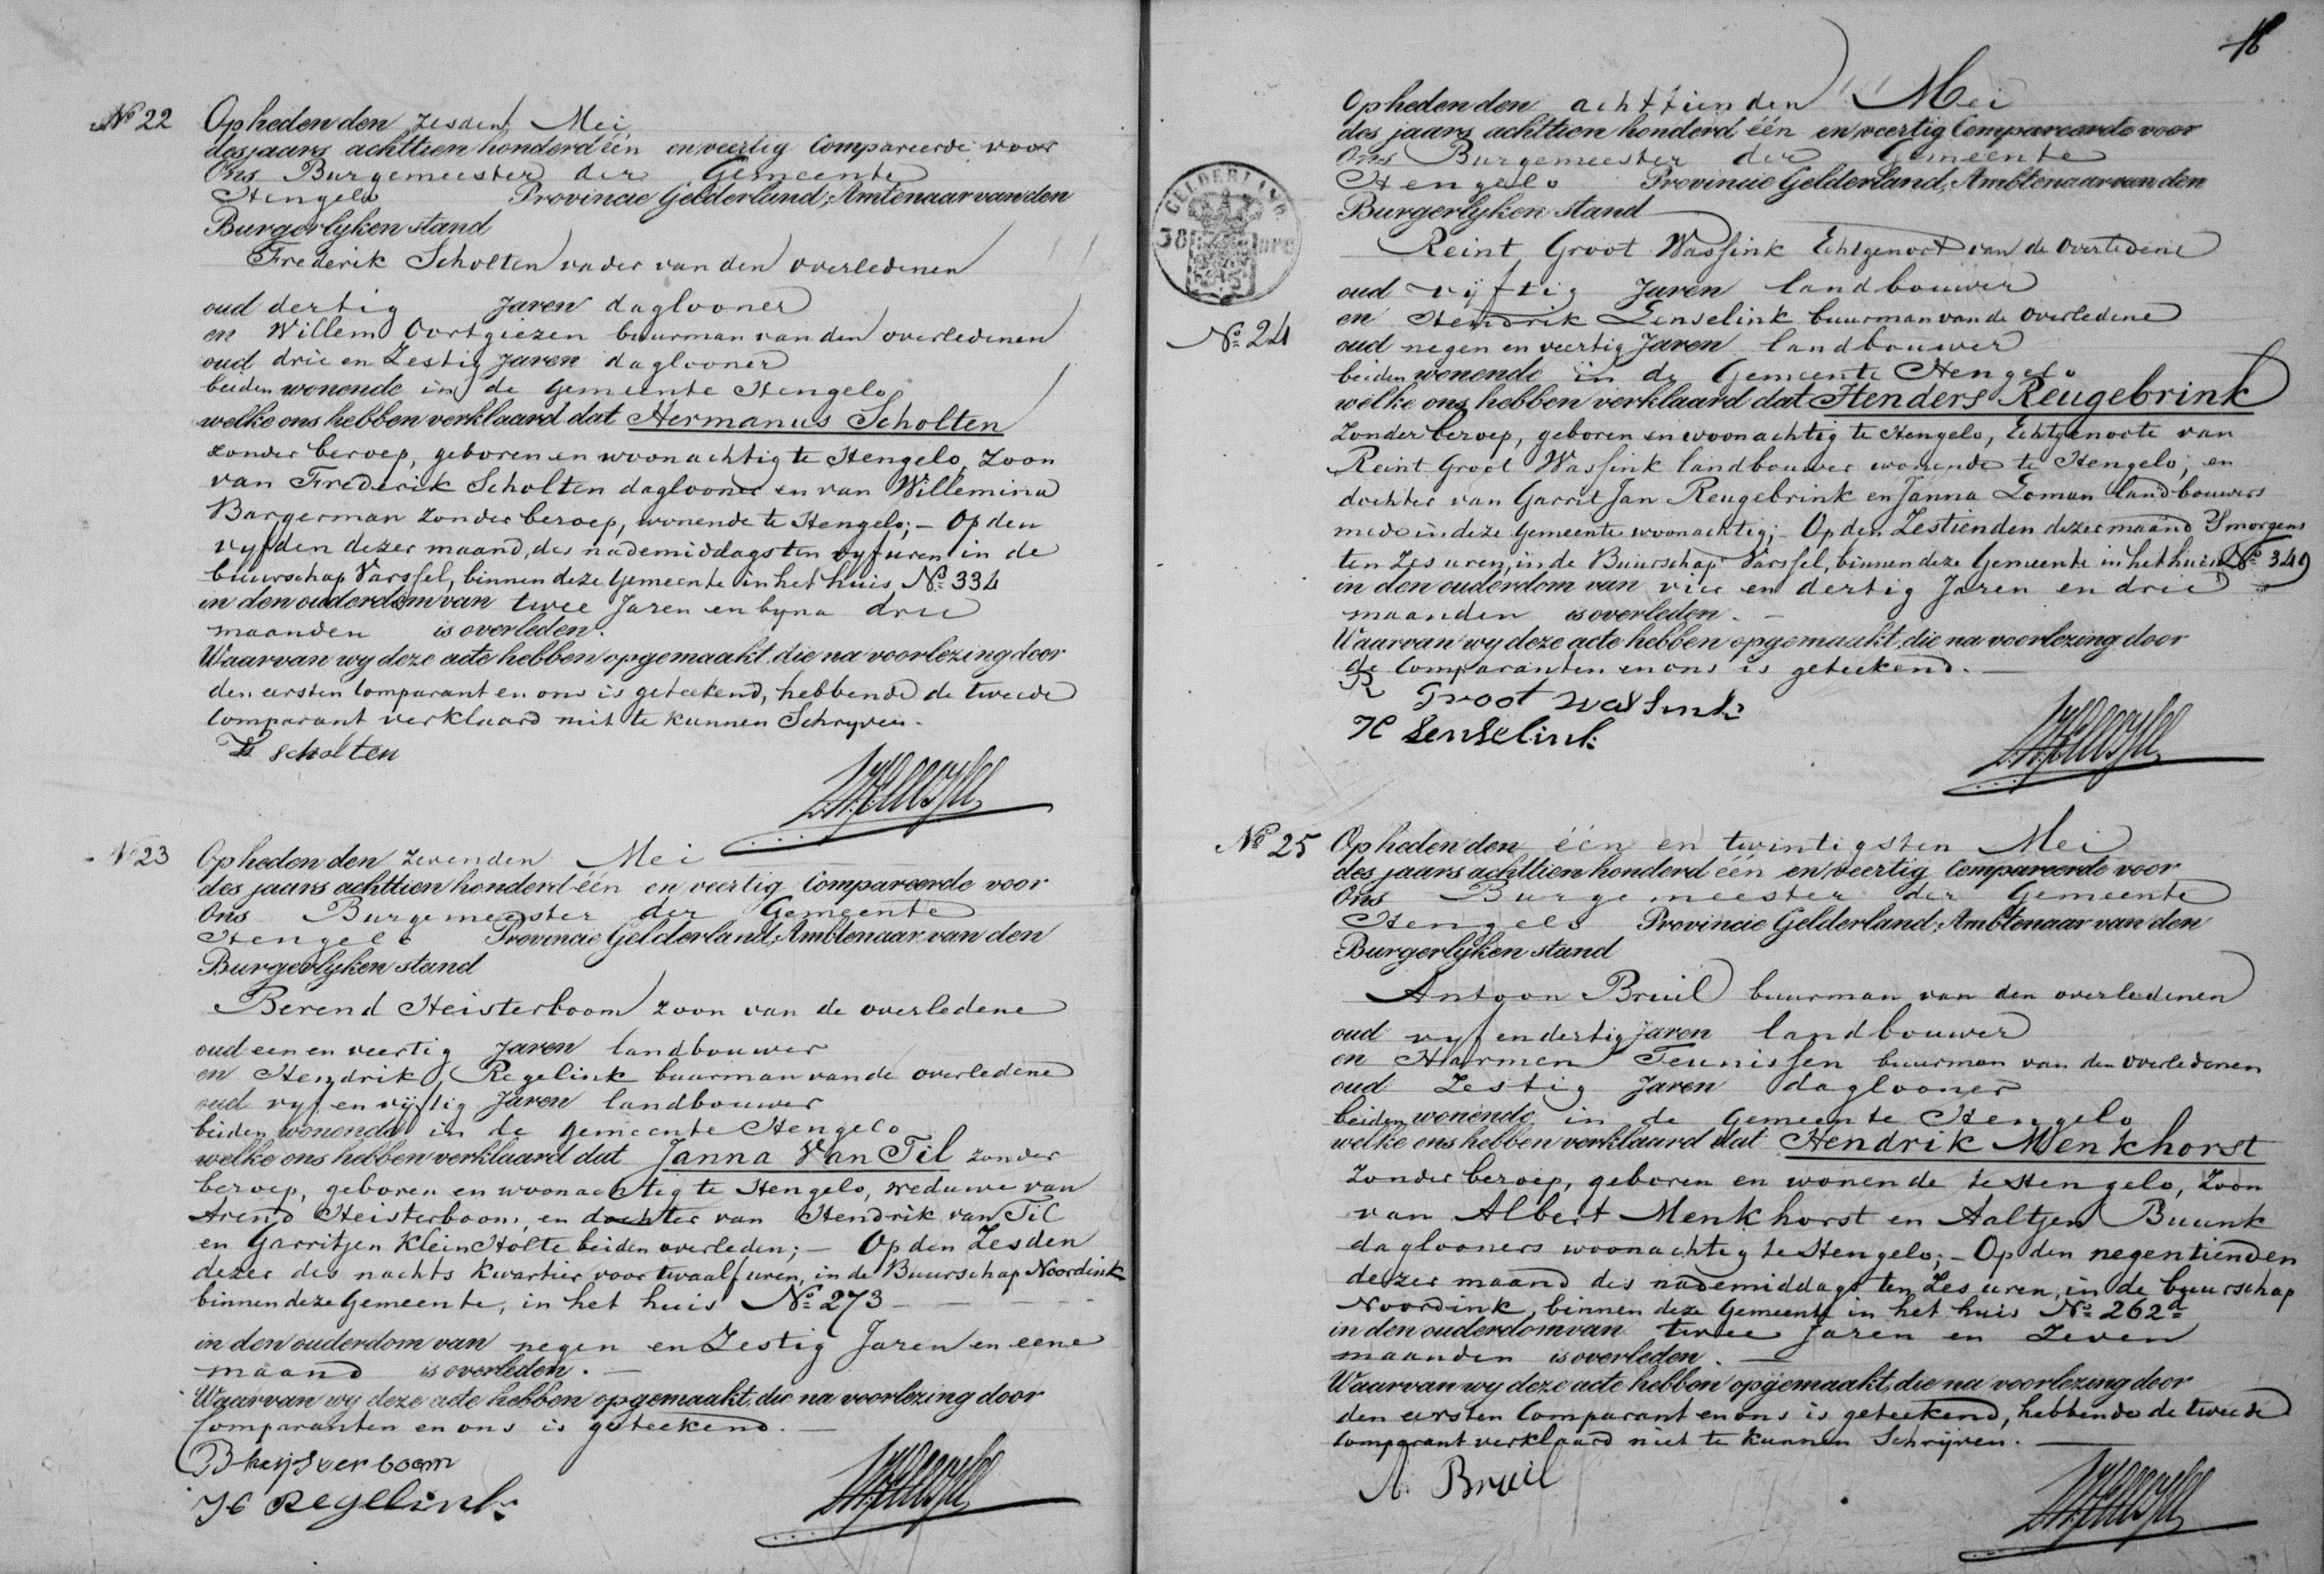 No 22
Op heden den zesden Mei
des jaars achttien honderd één en veertig Compareerde voor
Ons Burgemeester der Gemeente
Hengelo Provincie Gelderland, Amtenaar van den
Burgerlyken stand
Frederik Scholten vader van den overledenen
oud dertig Jaren daglooner
en Willem Oortgiezen buurman van den overledenen
oud drie en Zestig Jaren daglooner
beiden wonende in de Gemeente Hengelo
welke ons hebben verklaard dat Hermanus Scholten
zonder beroep, geboren en woonachtig te Hengelo, Zoon
van Frederik Scholten daglooner en van Willemina
Bargerman Zonder beroep, wonende te Hengelo; - Op den
vyfden dezer maand, des nademiddags ten vyf uren in de
buurschap Varssel, binnen deze Gemeente in het huis No 334
in den ouderdom van twee Jaren en byna drie
maanden is overleden.
Waarvan wy deze acte hebben opgemaakt, die na voorlezing door
den eersten Comparant en ons is geteekend, hebbende de tweede
Comparant verklaard niet te kunnen Schryven.
scholten
No 23
Op heden den zevenden Mei
des jaars achttien honderd één en veertig Compareerde voor
Ons Burgemeester der Gemeente
Hengelo Provincie Gelderland, Ambtenaar van den
Burgerlyken stand
Berend Heisterboom zoon van de overledene
oud een en veertig Jaren landbouwer
en Hendrik Regelink buurman van de overledene
oud vyf en vijftig Jaren landbouwer
beiden wonende in de Gemeente Hengelo
welke ons hebben verklaard dat Janna Van Til zonder
beroep, geboren en woonachtig te Hengelo, weduwe van
Arend Heisterboom, en dochter van Hendrik van Til
en Garritjen Klein Holte beiden overleden; - Op den Zesden
dezer des nachts kwartier voor twaalf uren, in de Buurschap Noordink
binnen deze Gemeente, in het huis No 273 - - - -
in den ouderdom van negen en Zestig Jaren en eene
maand is overleden. -
Waarvan wy deze acte hebben opgemaakt, die na voorlezing door
Comparanten en ons is geteekend. -
B heijsverboom
H Regelink
16
No 24
Op heden den achttienden Mei
des jaars achttien honderd één en veertig Compareerde voor
Ons Burgemeester der Gemeente
Hengelo Provincie Gelderland, Ambtenaar van den
Burgerlyken stand
Reint Groot Wassink Echtgenoot van de Overledene
oud vijftig Jaren landbouwer
en Hendrik Lenselink buurman van de Overledene
oud negen en veertig Jaren landbouwer
beiden wonende in de Gemeente Hengelo
welke ons hebben verklaard dat Henders Reugebrink
Zonder beroep, geboren en woonachtig te Hengelo, Echtgenoote van
Reint Groot Wassink landbouwer wonende te Hengelo; en
dochter van Garrit Jan Reugebrink en Janna Loman landbouwers
mede in deze Gemeente woonachtig; - Op den Zestienden dezer maand Smorgens
ten Zes uren, in de Buurschap Varssel, binnen deze Gemeente in het huis No 349
in den ouderdom van vier en dertig Jaren en drie
maanden is overleden. -
Waarvan wy deze acte hebben opgemaakt, die na voorlezing door
de Comparanten en ons is geteekend. -
R Groot Wassink
H Lenselink
No 25
Op heden den één en twintigsten Mei
des jaars achttien honderd één en veertig Compareerde voor
Ons Burgemeester der Gemeente
Hengelo Provincie Gelderland, Ambtenaar van den
Burgerlyken stand
Antoon Bruil buurman van den overledenen
oud vyf en dertig Jaren landbouwer
en Harmen Teunissen buurman van den overledenen
oud Zestig Jaren daglooner
beiden wonende in de Gemeente Hengelo
welke ons hebben verklaard dat Hendrik Menkhorst
Zonder beroep, geboren en wonende te Hengelo, Zoon
van Albert Menkhorst en Aaltjen Buunk
daglooners woonachtig te Hengelo; - Op den negentienden
dezer maand des nademiddags ten Zes uren, in de buurschap
Noordink, binnen deze Gemeente in het huis No 262d
in den ouderdom van twee Jaren en Zeven
maanden is overleden. -
Waarvan wy deze acte hebben opgemaakt, die na voorlezing door
den eersten Comparant en ons is geteekend, hebbende de tweede
Comparant verklaard niet te kunnen Schrijven.
A. Bruil